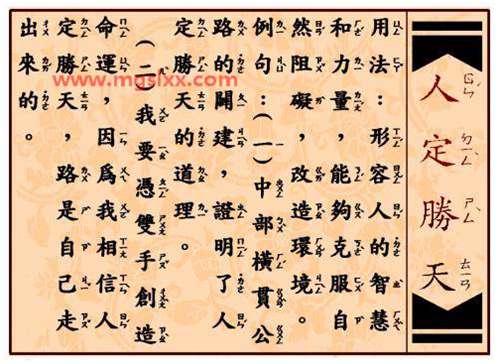 人定勝天
用法：形容人的智慧
和力量，能夠克服自
然阻礙，改造環境。
例句：（一）中部橫貫公
路的闢建，證明了人
定勝天的道理。
（二）我要憑雙手創造
命運，因爲我相信人
定勝天，路是自己走
出來的。
www.musixx.com